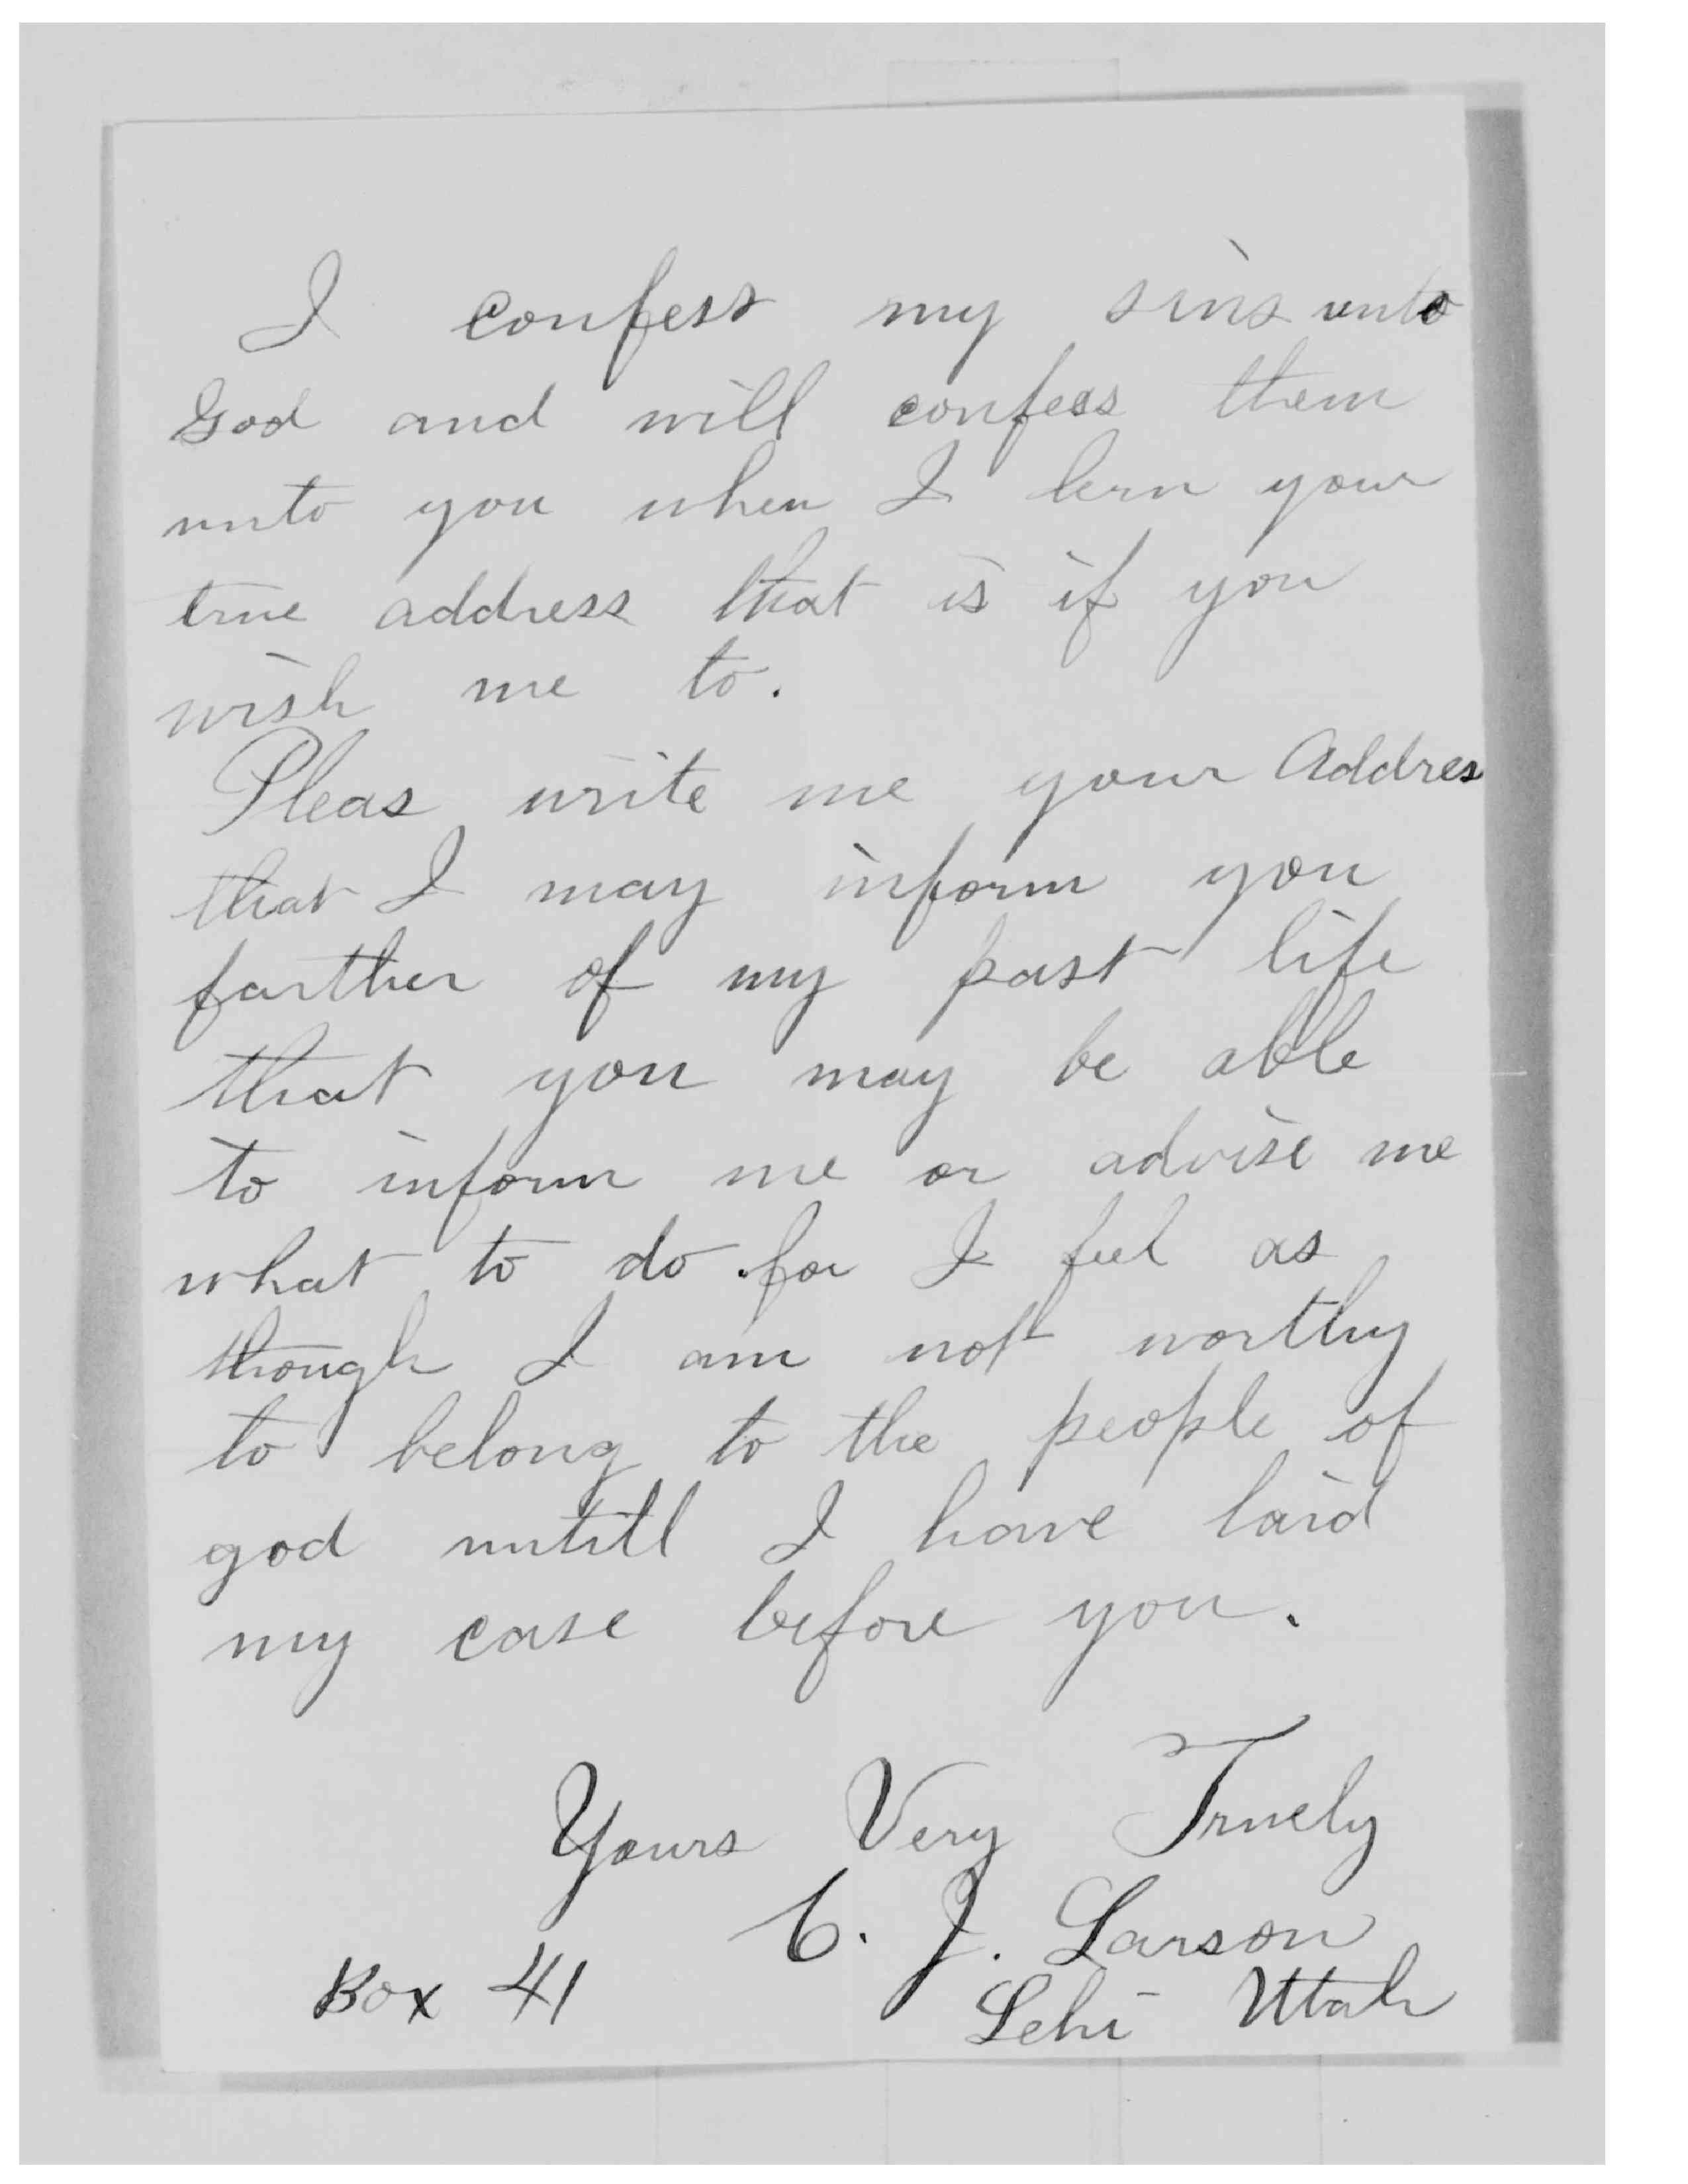 I confess my sins unto
God and will confess them
unto you when I lern your
true address that is if you
wish me to.
Pleas write me your Addres
that I may inform you
farther of my past life
that you may be able
to inform me or advise me
what to do. for I feel as
though I am not worthy
to belong to the people of
god untill I have laid
my case before you.
Yours Very Truely
C. J. Larson
Box 41 Lehi Utah